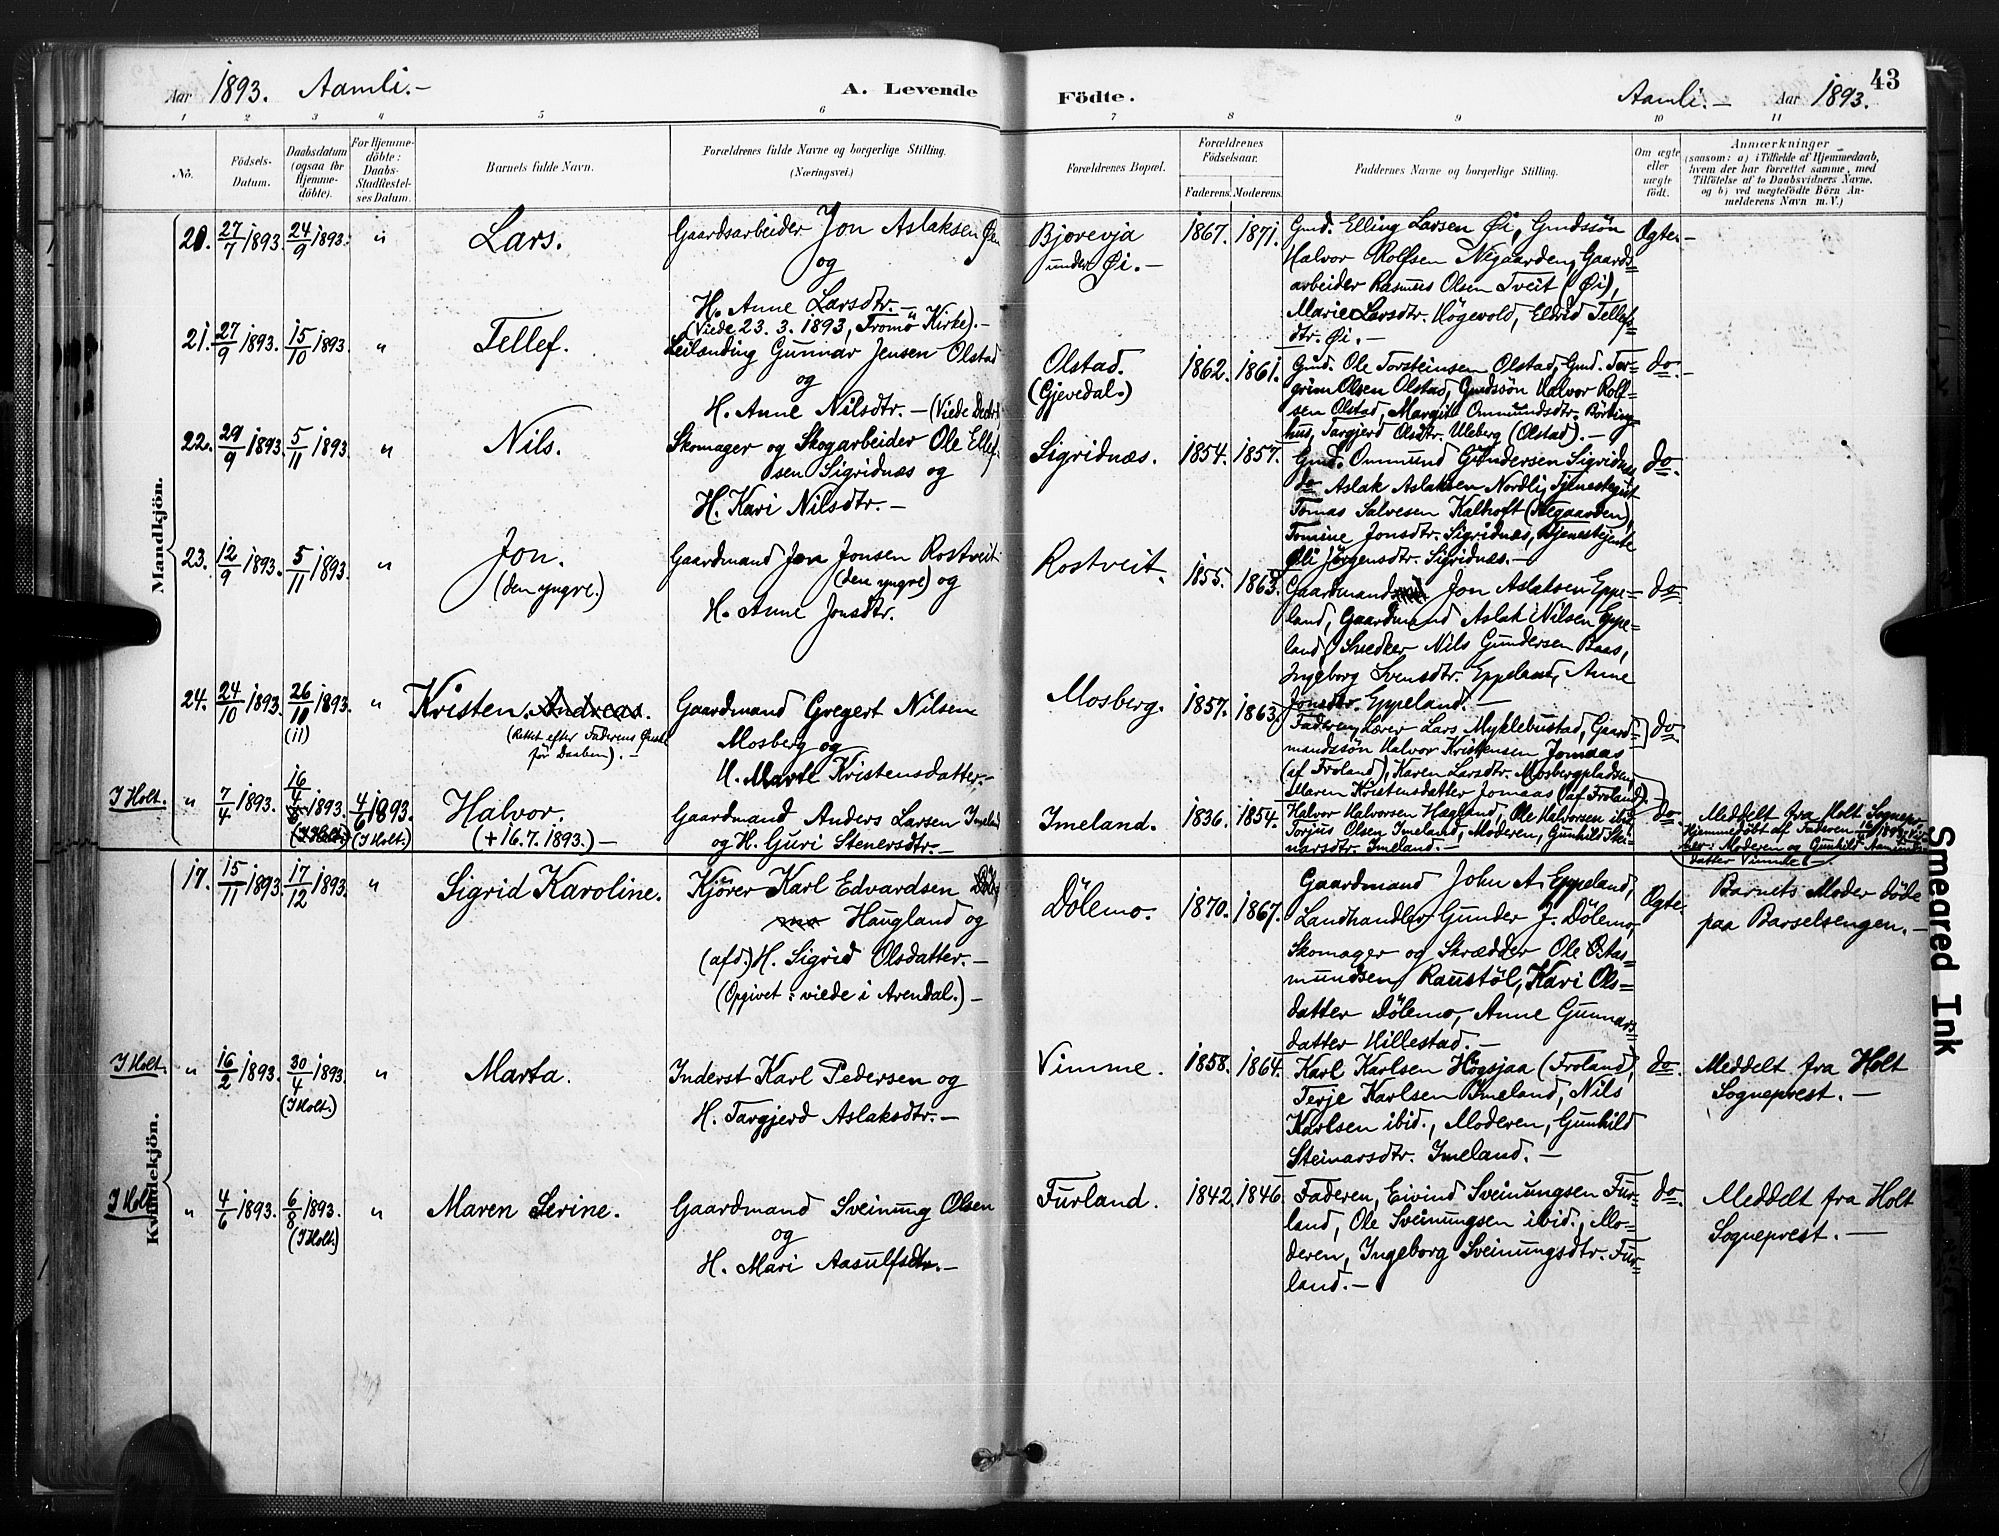 Aar 1893. Aamli.-
A. Levende
Födte.
Aamli.- Aar 1893.
43
1 2 3 4 5 6 7 8 9 10 11
No.
Födsels-
Datum.
Daabsdatum
(ogsaa for
Hjemme-
döbte).
For Hjemme-
döbte:
Daabs-
Stadfæstel-
ses Datum.
Barnets fulde Navn.
Forældrenes fulde Navne og borgerlige Stilling.
(Næringsvei.)
Forældrenes Bopæl.
Forældrenes
Födselsaar.
Faderens. Moderens.
Faddernes Navne og borgerlige Stilling.
Om ægte
eller
uægte
födt.
Anmærkninger
(saasom: a) i Tilfælde af Hjemmedaab,
hvem der har forrettet samme, med
Tilföielse af to Daabsvidners Navne,
og b) ved uægtefödte Börn An-
melderens Navn m. V.)
Mandkjön.
20. 27/7 1893. 24/9 1893. " Lars.
Gaardsarbeider Jon Aslaksen Øi
og
H. Anne Larsdtr.-
(Viede 23. 3. 1893, Tromö Kirke).-
Bjorevja
under Øi.-
1867. 1871.
Gmd. Elling Larsen Øi, Gmdssön
Halvor Rolfsen Negaarden, Gaards=
arbeider Rasmus Olsen Tveit (Øi),
Marie Larsdtr. Högevold, Eldrid Tellefs
dtr. Øi.-
Ægte.-
21. 27/9 1893. 15/10 1893. " Tellef.
Leilænding Gunnar Jensen Olstad
og
H. Anne Nilsdtr.-
Olstad.
(Gjevedal.)
1862. 1861.
Gmd. Ole Torsteinsen Olstad, Gmd. Tor=
grim Olsen Olstad, Gmdssön Halvor Rolf=
sen Olstad, Margit Ommundsdtr. Börting=
hus, Targjerd Olsdtr. Uleberg (Olstad).-
do.-
22. 29/9 1893. 5/11 1893. " Nils.
Skomager og Skogarbeider Ole Ellef=
sen Sigridnæs og
H. Kari Nilsdtr.-
Sigridnæs. 1854. 1857.
Gmd. Ommund Gundersen Sigridnæs
do Aslak Aslaksen Nordli, Tjenestegut
Tomas Salvesen Kalhoft (Negaarden),
Tomine Jonsdtr. Sigridnæs, Tjenestejente
Øli Jörgensdtr. Sigridnæs.-
do.
23. 12/9 1893. 5/11 1893. " Jon.
(den yngre.)
Gaardmand Jon Jonsen Rostveit
(den yngre) og
H. Anne Jonsdtr.
Rostveit. 1855. 1863.
Gaardmand Jon Aslaksen Eppe-
land, Gaardmand Aslak Nilsen Eppe=
land, Snedker Nils Gundersen Baas,
Ingeborg Svensdtr. Eppeland, Anne
Jonsdtr. Eppeland.-
do.
24. 24/10 1893. 26/11 1893. (11) " Kristen. Andreas.
(Rettet efter Faderens Ønske
för Daaben).-
Gaardmand Gregert Nilsen
Mosberg og
H. Marte Kristensdatter.-
Mosberg. 1857. 1863.
Faderen, Lærer Lars Myklebustad, Gaard=
mandssön Halvor Kristensen Jomaas
(af Froland), Karen Larsdtr. Mosbergpladsen,
Maren Kristensdatter Jomaas (af Froland).-
do.
I Holt. " 7/4 1893. 16/4 1893. (I Holt.) 4/6 1893. (I Holt.)
Halvor.
(+ 16.7.1893.)-
Gaardmand Anders Larsen Imeland
og H. Guri Stenersdtr.-
Imeland. 1836. 1854.
Halvor Halvorsen Hagland, Ole Halvorsen ibid.,
Torjus Olsen Imeland, Moderen, Gunhild Stei=
narsdtr. Imeland.-
do.
Meddelt fra Holt Sognepr.
Hjemmedöbt af Faderen
Moderen og Gunhild
datter Vimme.-
Kvindekjön.
17. 15/11 1893. 17/12 1893. " Sigrid Karoline.
Kjörer Karl Edvardsen
Haugland og
(afd.) H. Sigrid Olsdatter.-
(Opgivet: viede i Arendal.)-
Dölemo. 1870. 1867.
Gaardmand John A. Eppeland,
Landhandler Gunder J. Dölemo,
Skomager og Skrædder Ole Ostas=
mundsen Raustöl, Kari Ols=
datter Dölemo, Anne Gunnars=
datter Hillestad.-
Ægte.
Barnets Moder döde
paa Barselsengen.-
I Holt. " 16/2 1893. 30/4 1893. (I Holt.) " Marta.
Inderst Karl Pedersen og
H. Targjerd Aslaksdtr.-
Vimme. 1858. 1864.
Karl Karlsen Högsjaa (Froland),
Terje Karlsen Imeland, Nils
Karlsen ibid., Moderen, Gunhild
Steinarsdtr. Imeland.-
do.
Meddelt fra Holt
Sogneprest.-
I Holt. " 4/6 1893. 6/8 1893. (I Holt.) " Maren Serine.
Gaardmand Sveinung Olsen
og
H. Mari Aasulfsdtr.-
Furland. 1842. 1846.
Faderen, Eivind Sveinungsen Fur=
land, Ole Sveinungsen ibid., Mo=
deren, Ingeborg Sveinungsdtr. Fur=
land.-
do.
Meddelt fra Holt
Sogneprest.-
Smeared Ink